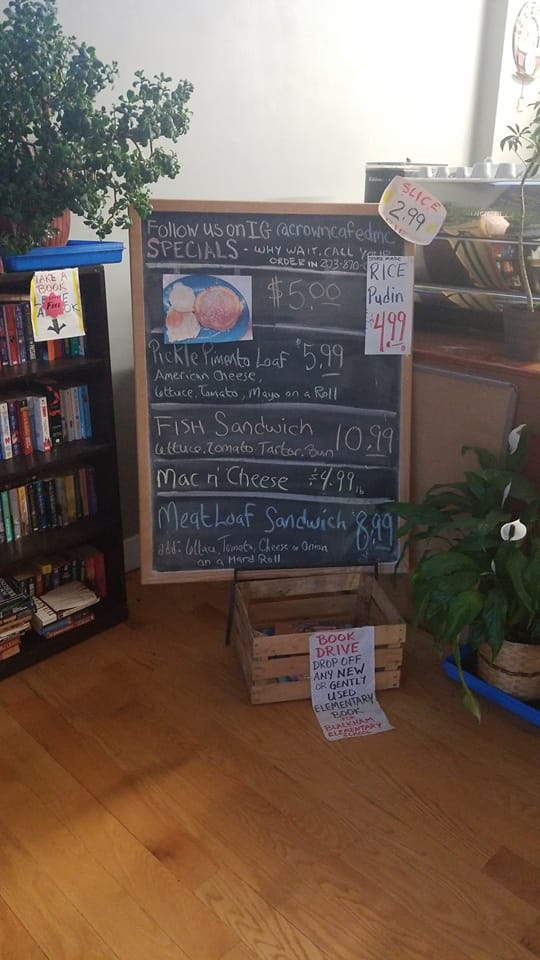 FOLLOW US ON IG @crowncafedmc
SPECIALS - WHY WAIT. CALL YOUR
ORDER IN 203-870-
$5.00
Pickle Pimento Loaf $5.99
American Cheese,
Lettuce, Tomato, Mayo on a Roll
FISH Sandwich 10.99
Lettuce, Tomato. Tartar. Bun
Mac n' Cheese $4.99 lb
Meat Loaf Sandwich 8.99
add: Lettuce, Tomato, Cheese or Onion
on a Hard Roll
SLICE
2.99
RICE
Pudin
$4.99
TAKE A
BOOK
FREE
BOOK
DRIVE
DROP OFF
ANY NEW
OR GENTLY
USED
ELEMENTARY
BOOK
FOR
BLACKHAM
ELEMENTARY
SCHOOL